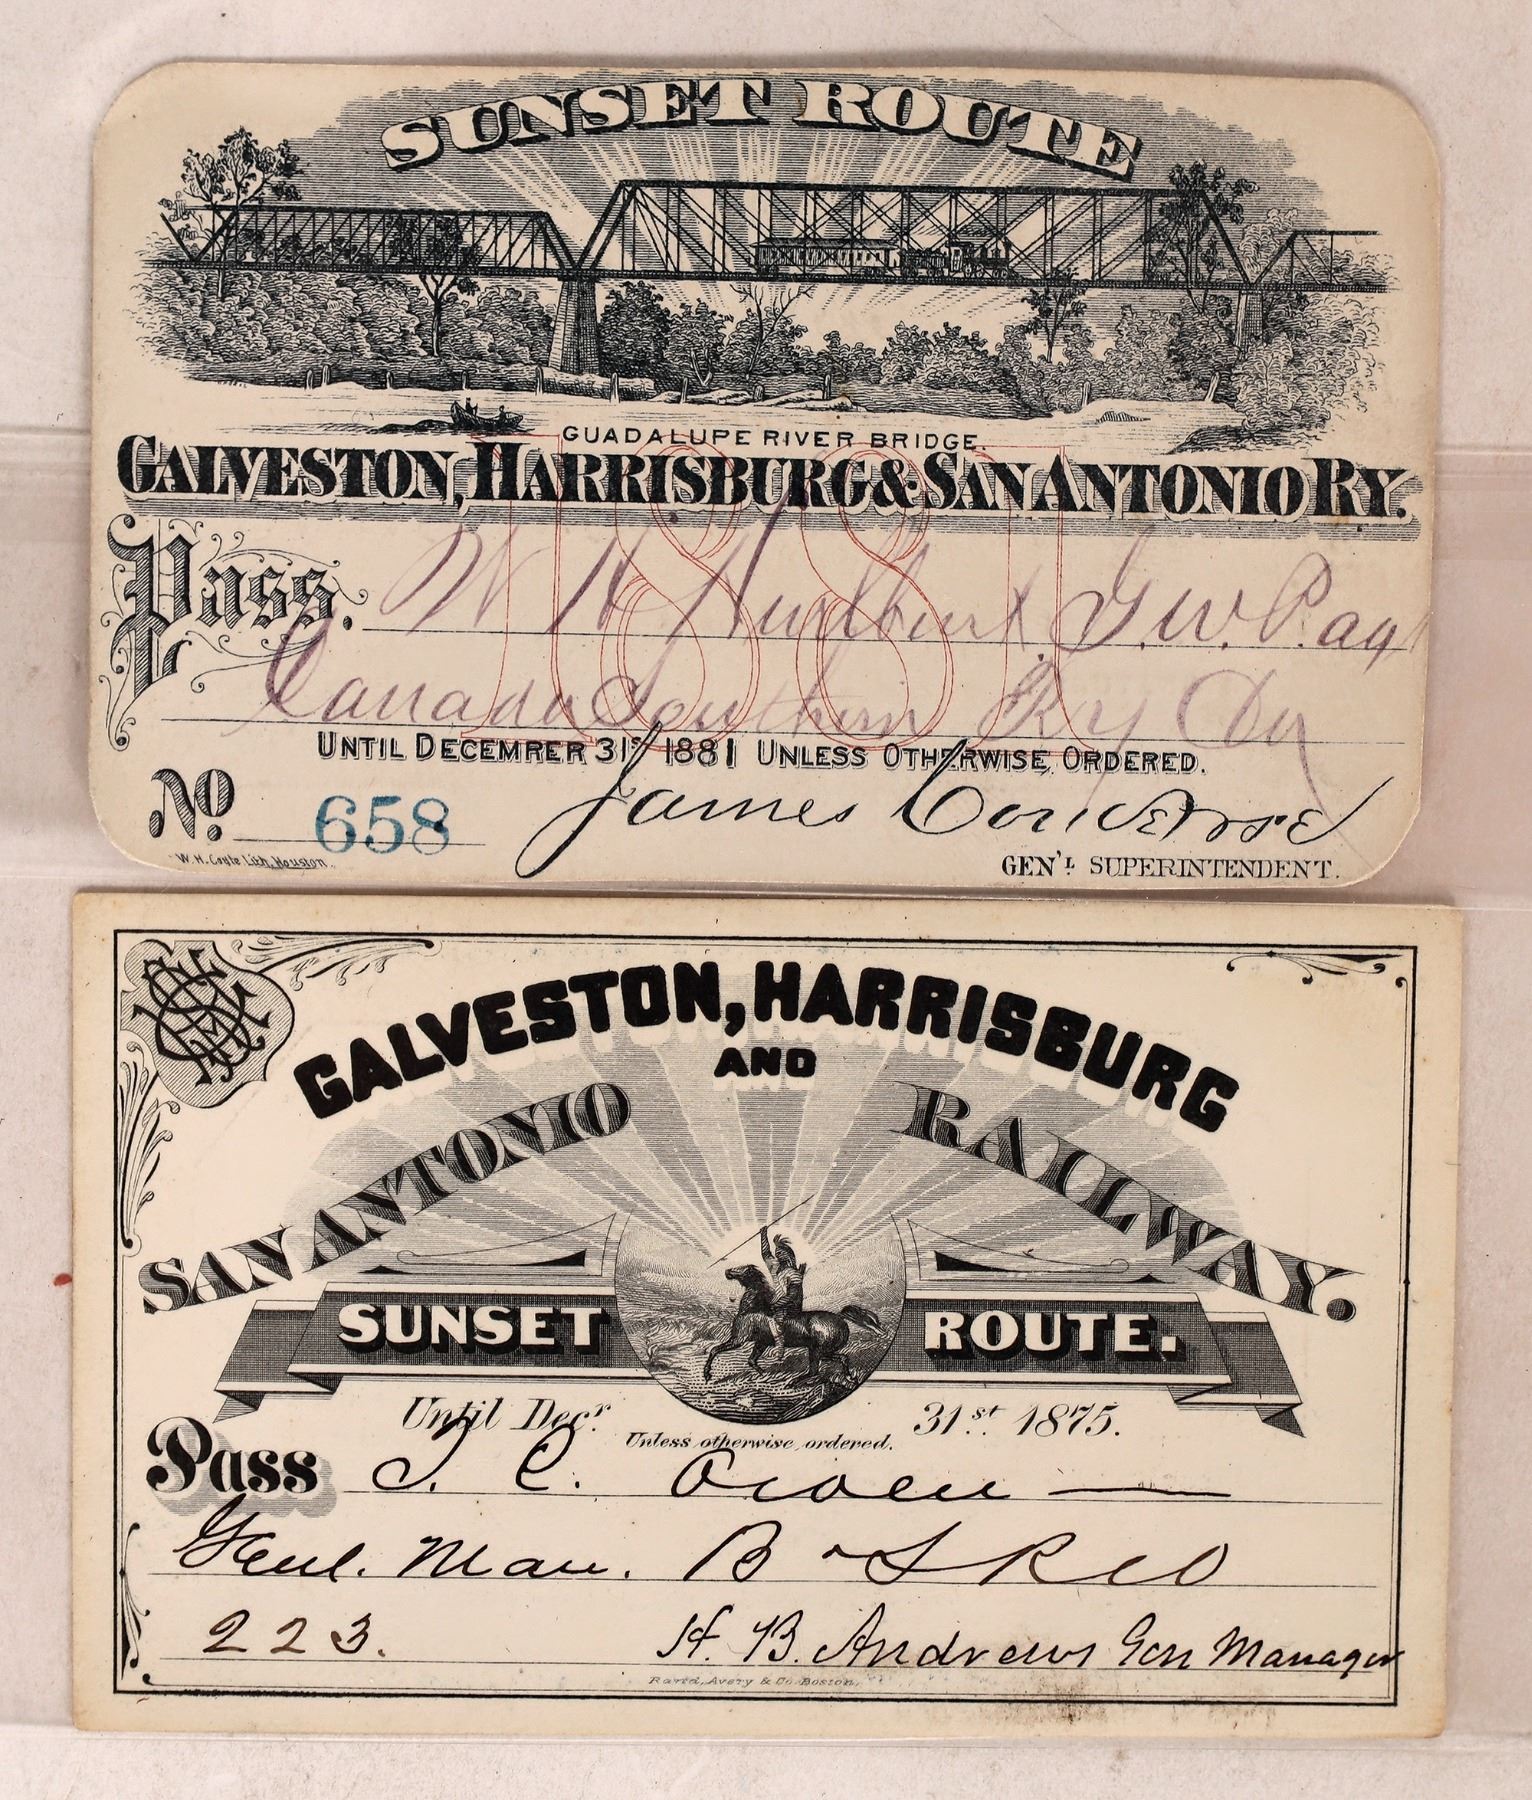 SUNSET ROUTE
GUADALUPE RIVER BRIDGE.
GALVESTON, HARRISBURG & SAN ANTONIO RY.
1881
Pass. W H Hurlburt. G. W. P. agt
Canada Southern Ry Co
UNTIL DECEMRER 31ST 1881 UNLESS OTHERWISE ORDERED.
No 658 James Converse
W. H. Coyle Lith, Houston. GEN'L SUPERINTENDENT.
GALVESTON, HARRISBURG
AND
SAN ANTONIO RAILWAY.
SUNSET ROUTE.
Until Decr. 31st. 1875.
Unless otherwise ordered.
Pass J. C. Owen
Genl. Man.
223. H. B. Andrews Gen Manager
Rand, Avery & Co. Boston,